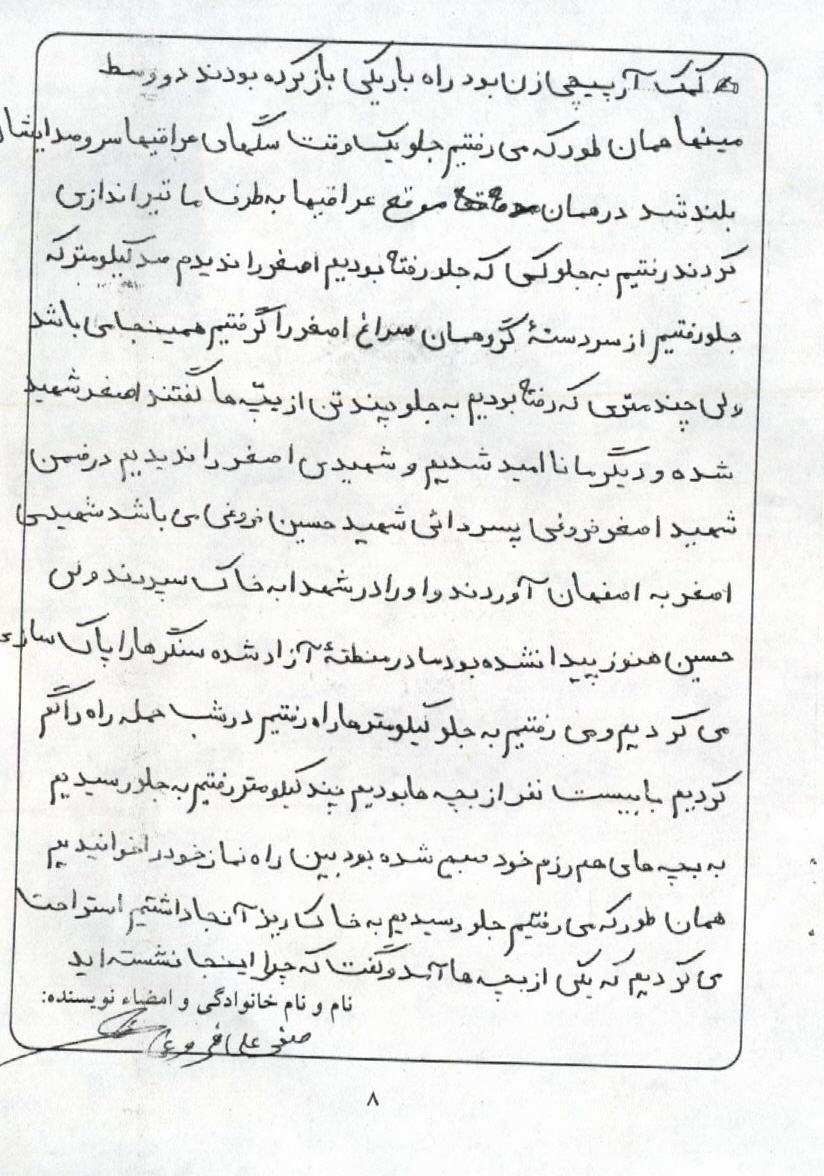 کمک آرپیچی زن بود راه باریکی باز کرده بودند در وسط
مینها همان طور که می رفتیم جلو یک وقت سگهای عراقیها سر و صدایشان
بلند شد در همان موقع عراقیها به طرف ما تیراندازی
کردند رفتیم به جلو کمی که جلو رفته بودیم اصغر را ندیدم صد کیلومتر که
جلو رفتیم از سردستهٔ گروهمان سراغ اصغر را گرفتیم همینجا می باشد
ولی چند متری که رفته بودیم به جلو چند تن از بچّه ها گفتند اصغر شهید
شده و دیگر ما ناامید شدیم و شهیدی اصغر را ندیدیم در ضمن
شهید اصغر فروغی پسر دائی شهید حسین فروغی می باشد شهیدی
اصغر به اصفهان آوردند و او را در شهدا به خاک سپردند ولی
حسین هنوز پیدا نشده بود ما در منطقهٔ آزاد شده سنگرها را پاک سازی
می کردیم و می رفتیم به جلو کیلومترها راه رفتیم در شب حمله راه را گم
کردیم با بیست نفر از بچه ها بودیم چند کیلومتر رفتیم به جلو رسیدیم
به بچه های هم رزم خود صبح شده بود بین راه نماز خود را خواندیم
همان طور که می رفتیم جلو رسیدیم به خاک ریز آنجا داشتیم استراحت
می کردیم که یکی از بچه ها آمد و گفت که چرا اینجا نشسته اید
نام و نام خانوادگی و امضاء نویسنده:
صفر علی فروغی
۸